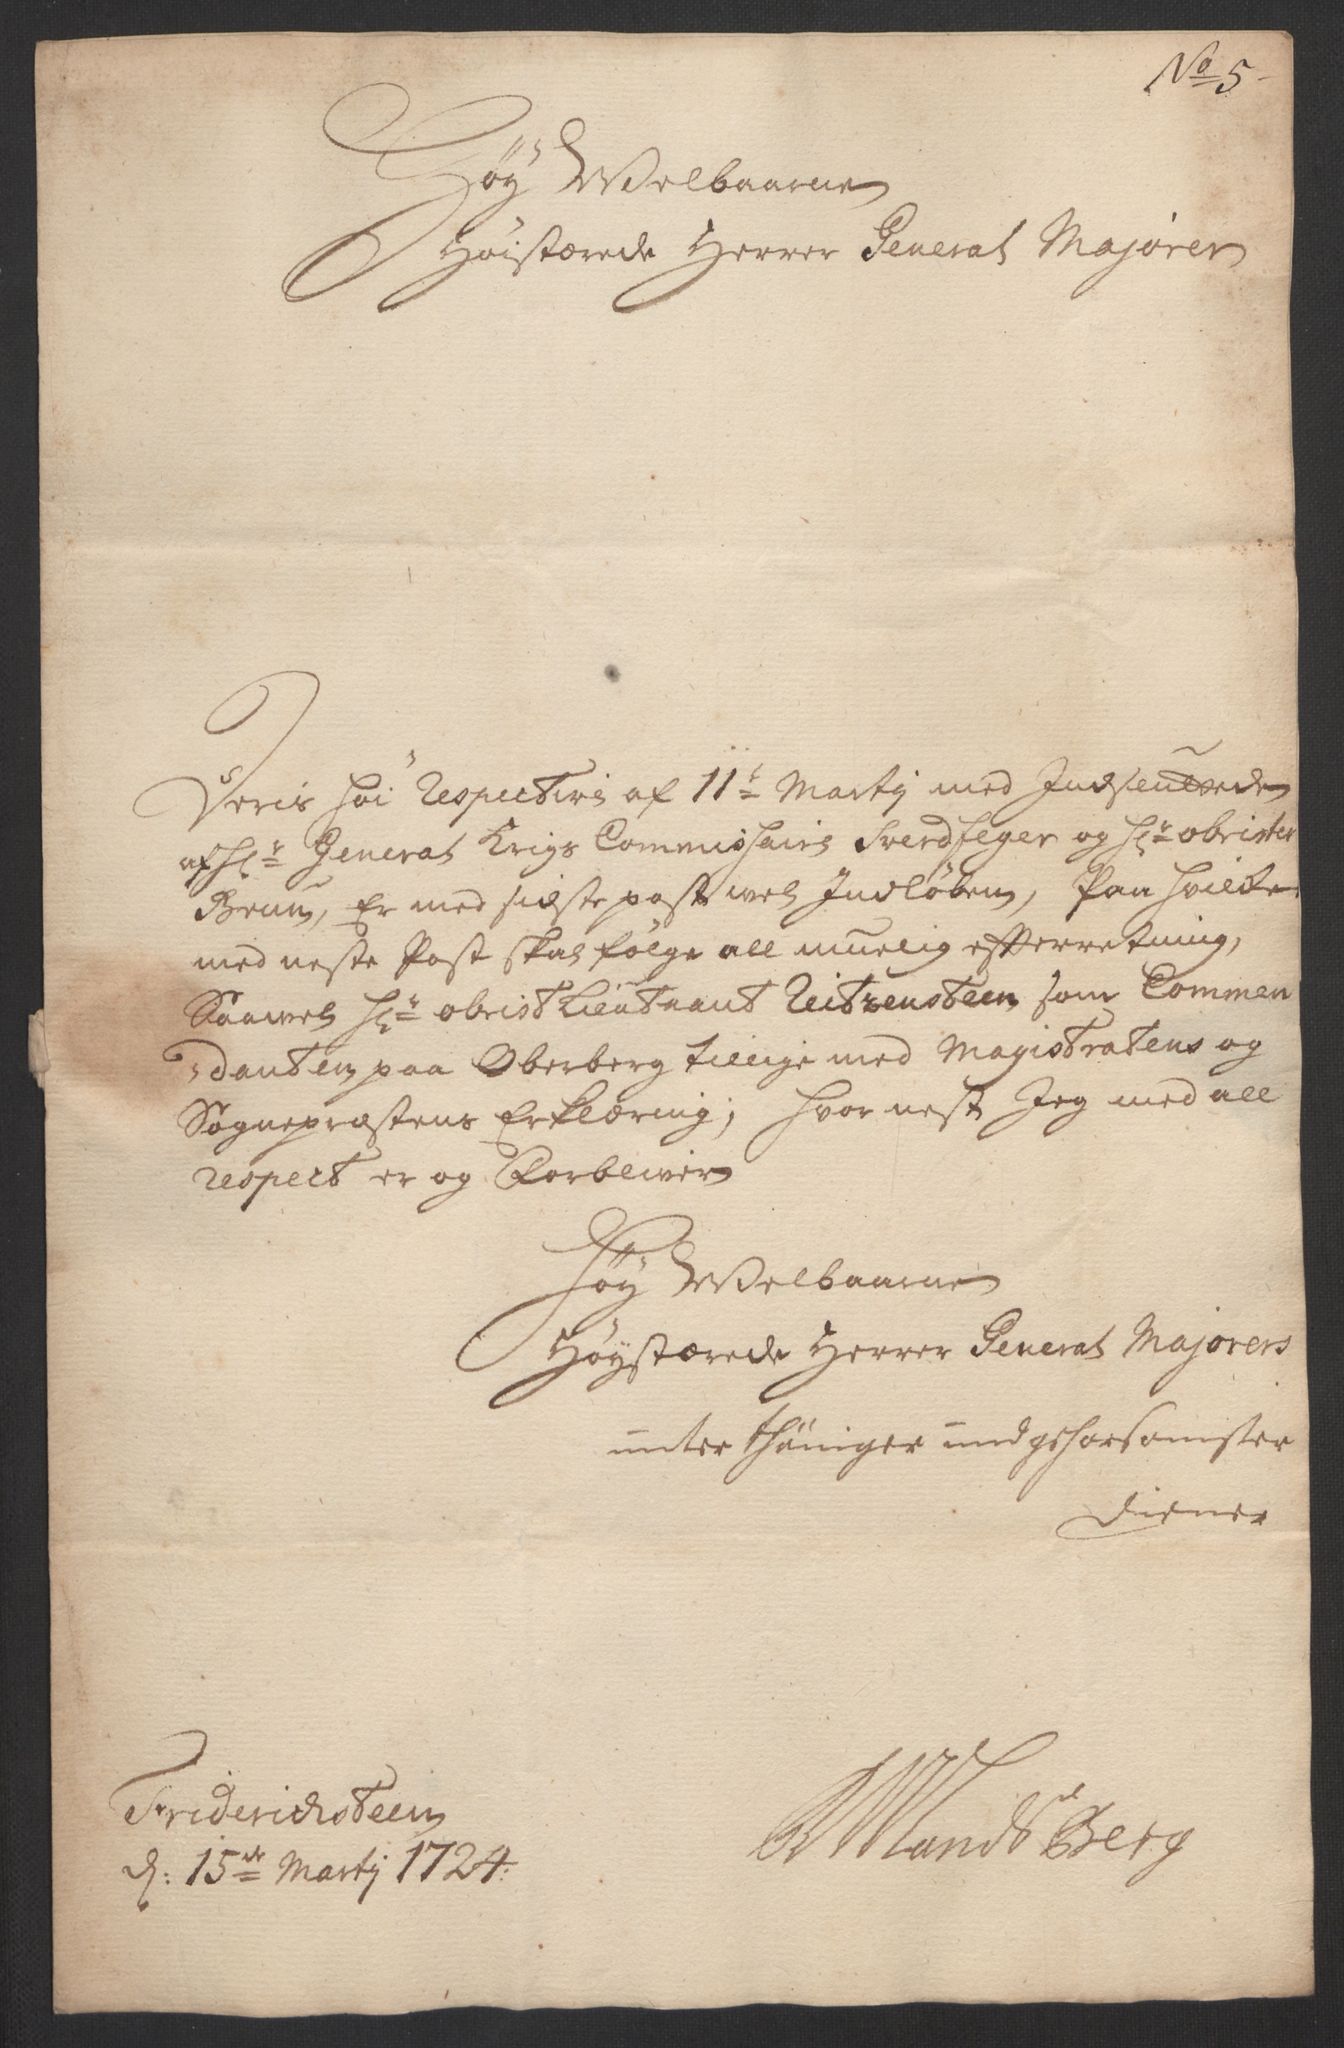 No 5
Høy Welbaarne
Høistærede Herrer General Majorer
Deris høi Respective af 11te Martij med Indsendede
af Hr General Krigs Commissairs Sverdfeger og Hr obrister
Brun, Er med sidste post wel Indløben, Paa hvilke
med neste Post skal følge all muelig efterretning,
Saawel Hr obrist Lieutnant Reitzensteen som Commen
danten paa Oberberg tillige med Magistratens og
Sognepræstens Erklæring; hvor nest Jeg med all
respect er og Forblever
Høy Welbaarne
Høystærede Herrer General Majorers
unterthäniger und gehorsamster
Diener
Friderichsteen
d: 15de Martij 1724.
LandsBerg